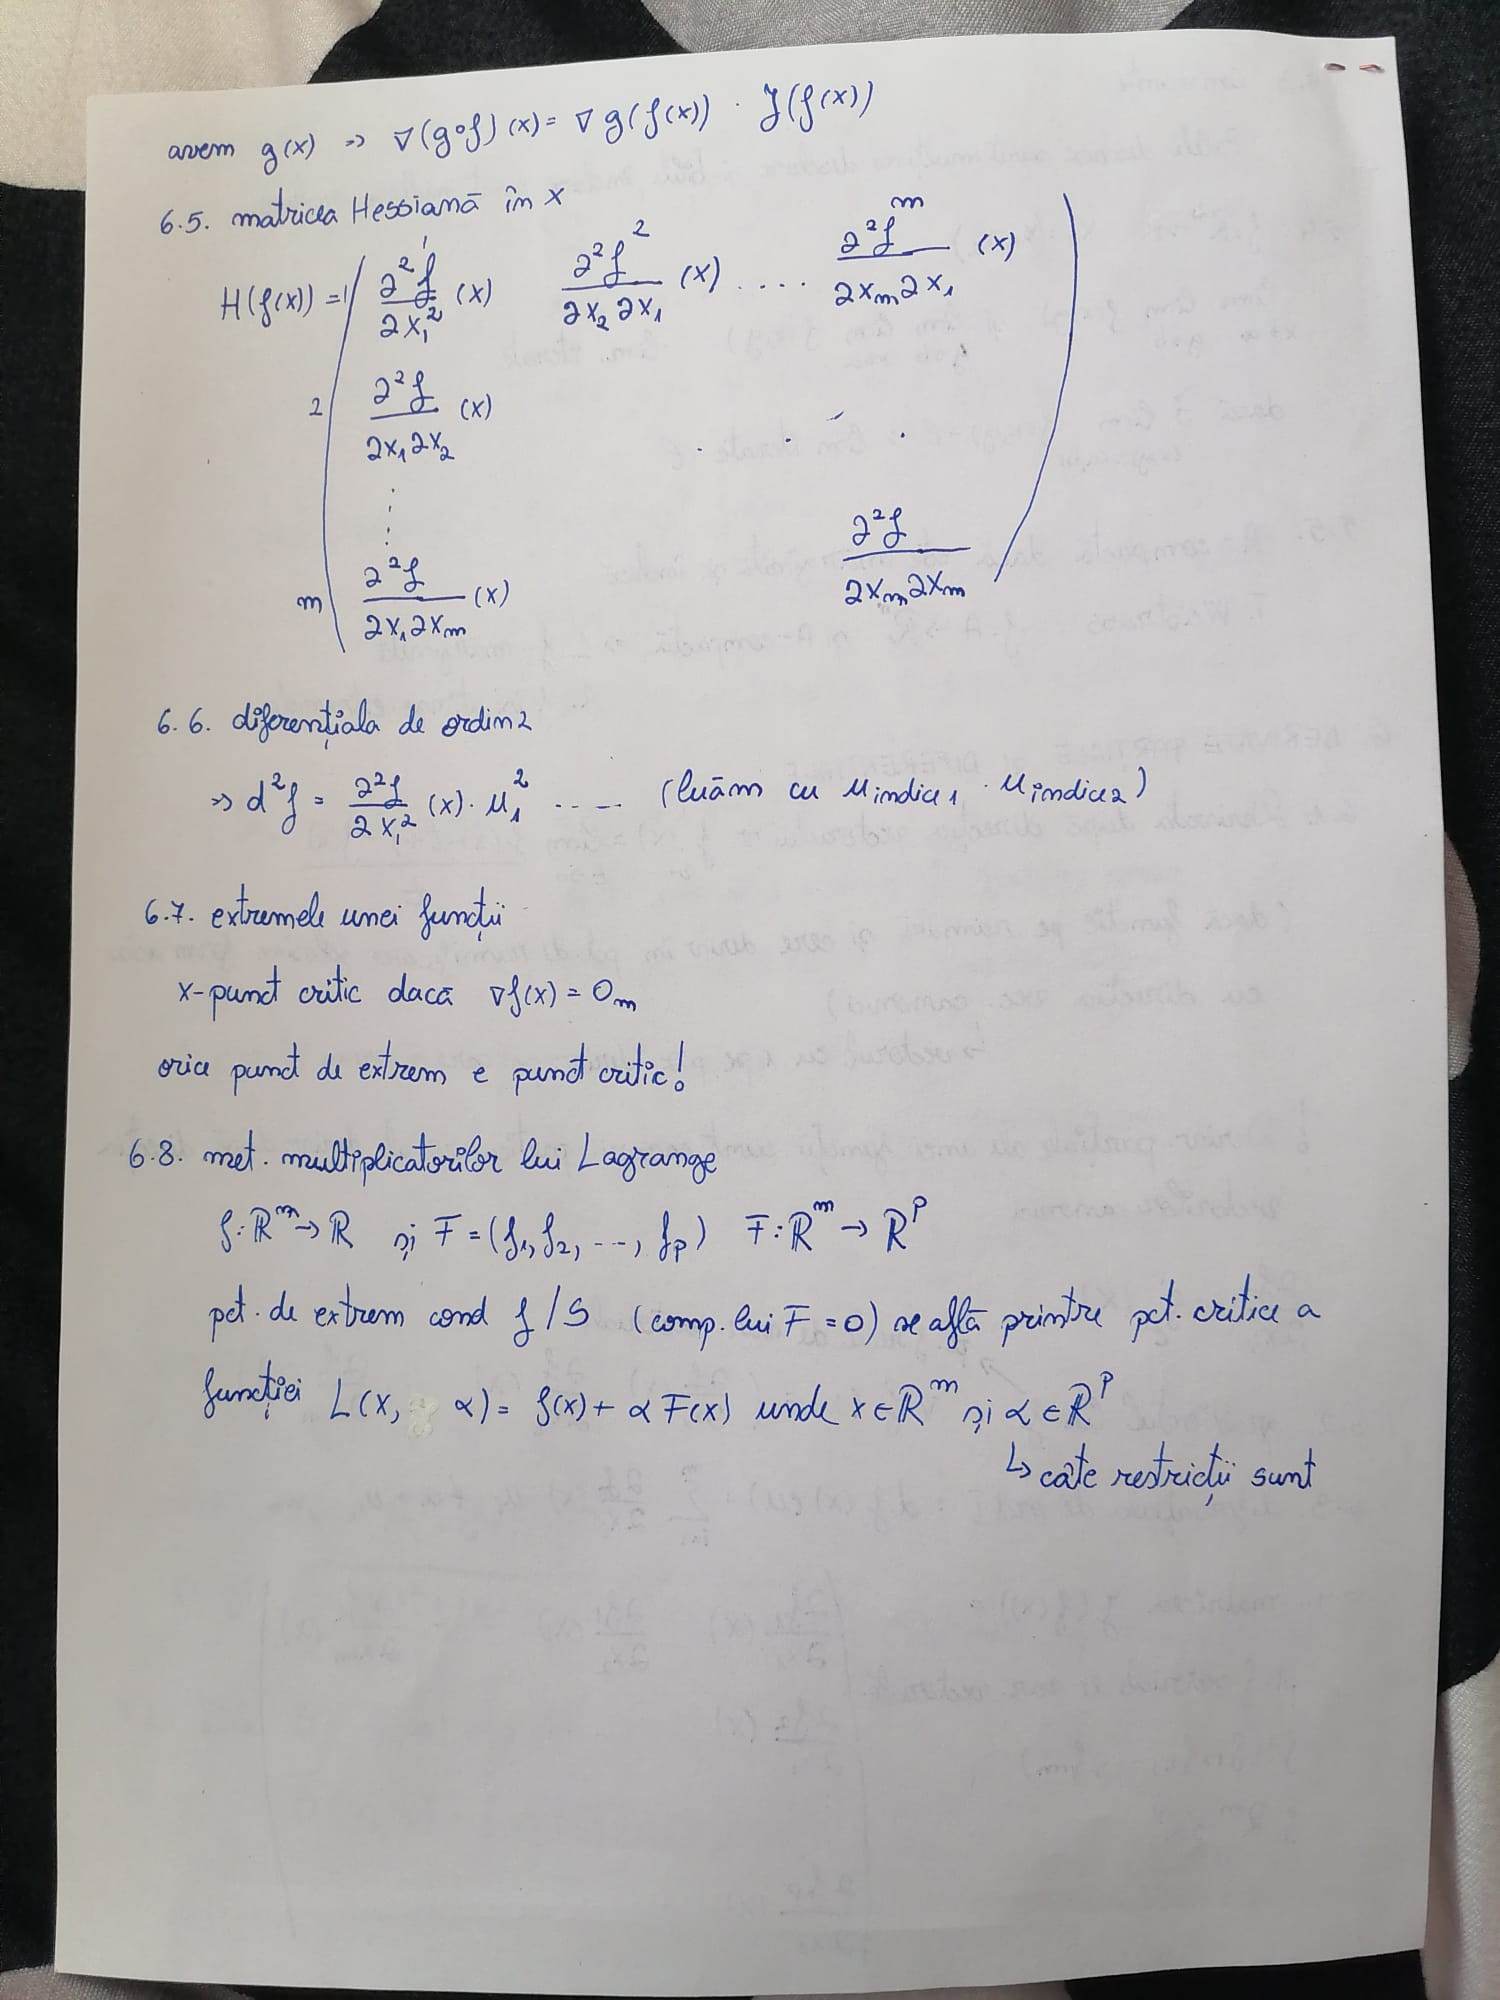 avem g(x) => ∇(g∘f)(x) = ∇g(f(x)) · J(f(x))
6.5. matricea Hessiană în x
1 2 m
H(f(x)) = 1 ( ∂²f/∂x₁² (x) ∂²f/∂x₂∂x₁ (x) .... ∂²f/∂xₘ∂x₁ (x) )
2 ∂²f/∂x₁∂x₂ (x) . . .
⋮
m ∂²f/∂x₁∂xₘ (x) ∂²f/∂xₘ∂xₘ
6.6. diferențiala de ordin 2
=> d²f = ∂²f/∂x₁² (x) · u₁² ..... (luăm cu u indice 1 · u indice 2)
6.7. extremele unei funcții
x-punct critic dacă ∇f(x) = 0ₘ
orice punct de extrem e punct critic!
6.8. met. multiplicatorilor lui Lagrange
f: ℝᵐ → ℝ și F = (f₁, f₂, ..., fₚ) F: ℝᵐ → ℝᵖ
pct. de extrem cond f/S (comp. lui F = 0) se află printre pct. critice a
funcției L(x, α) = f(x) + α F(x) unde x ∈ ℝᵐ și α ∈ ℝᵖ
↳ câte restricții sunt